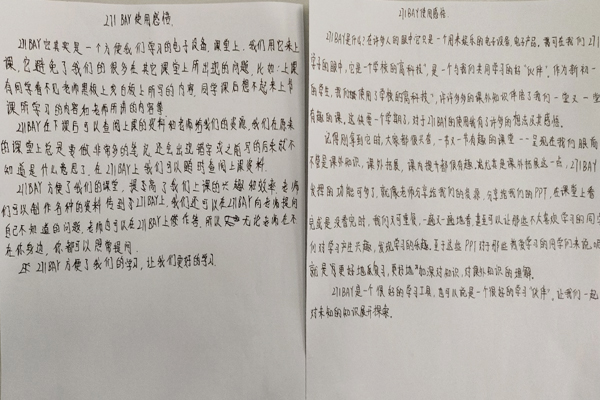 211 BAY 使用感悟.
211BAY它其实是一个方便我们学习的电子设备.课堂上,我们用它来上
课,它避免了我们的很多在其它课堂上所出现的问题,比如:上课
有同学看不见老师黑板上及白板上所写的内容,同学课后想不起来上节
课所学习的内容和老师所讲的内容等.
211BAY在下课后可以查阅上课的资料和老师给我们的资源,我们在原来
的课堂上总是要做非常多的笔记,还会出现看字或之前写的后来就不
知道是什么意思了,在211BAY上我们可以随时查阅上课资料.
211BAY方便了我们的课堂,提高了我们上课的兴趣和效率,老师
们可以制作各种的资料传到了211BAY上,我们还可以在211BAY向老师提问
自己不知道的问题,老师也可以在211BAY上做作答,所以无论老师在不
在你身边,你都可以照常提问.
211BAY方便了我们的学习,让我们更好的学习.
211BAY使用感悟.
211BAY是什么?在许多人的眼中它只是一个用来娱乐的电子设备,电子产品,而在我们211
学习的眼中,它是一个学校的高科技",是一个与我们共同学习的好"伙伴",作为新初一
的学生,我们使用了学校的"高科技",许许多多的课外知识伴随了我们一堂又一堂
有趣的课,这快要一个学期了,对于211BAY的使用我有了许多的想法及其感悟.
记得刚拿到它时,大家都很兴奋,一节又一节有趣的课堂——呈现在我们眼前
不管是课外知识,课外拓展,课内提升都很有趣.尤其是课外拓展这一点,211BAY
发挥的功能可多了,就像老师分享给我们的资源,分享给我们的PPT,在课堂上看
完或是没看完时,我们又可重复,一遍又一遍地看,甚至可以让那些不大喜欢学习的同学
们对学习产生兴趣,发现学习的乐趣.至于这些PPT对于那些热爱学习的同学们来说,
就是有更好地去复习,更好地加深对知识,对课外知识的理解.
211BAY是一个很好的学习工具,也可以说是一个很好的学习"伙伴",让我们一起
对未知的知识展开探索.